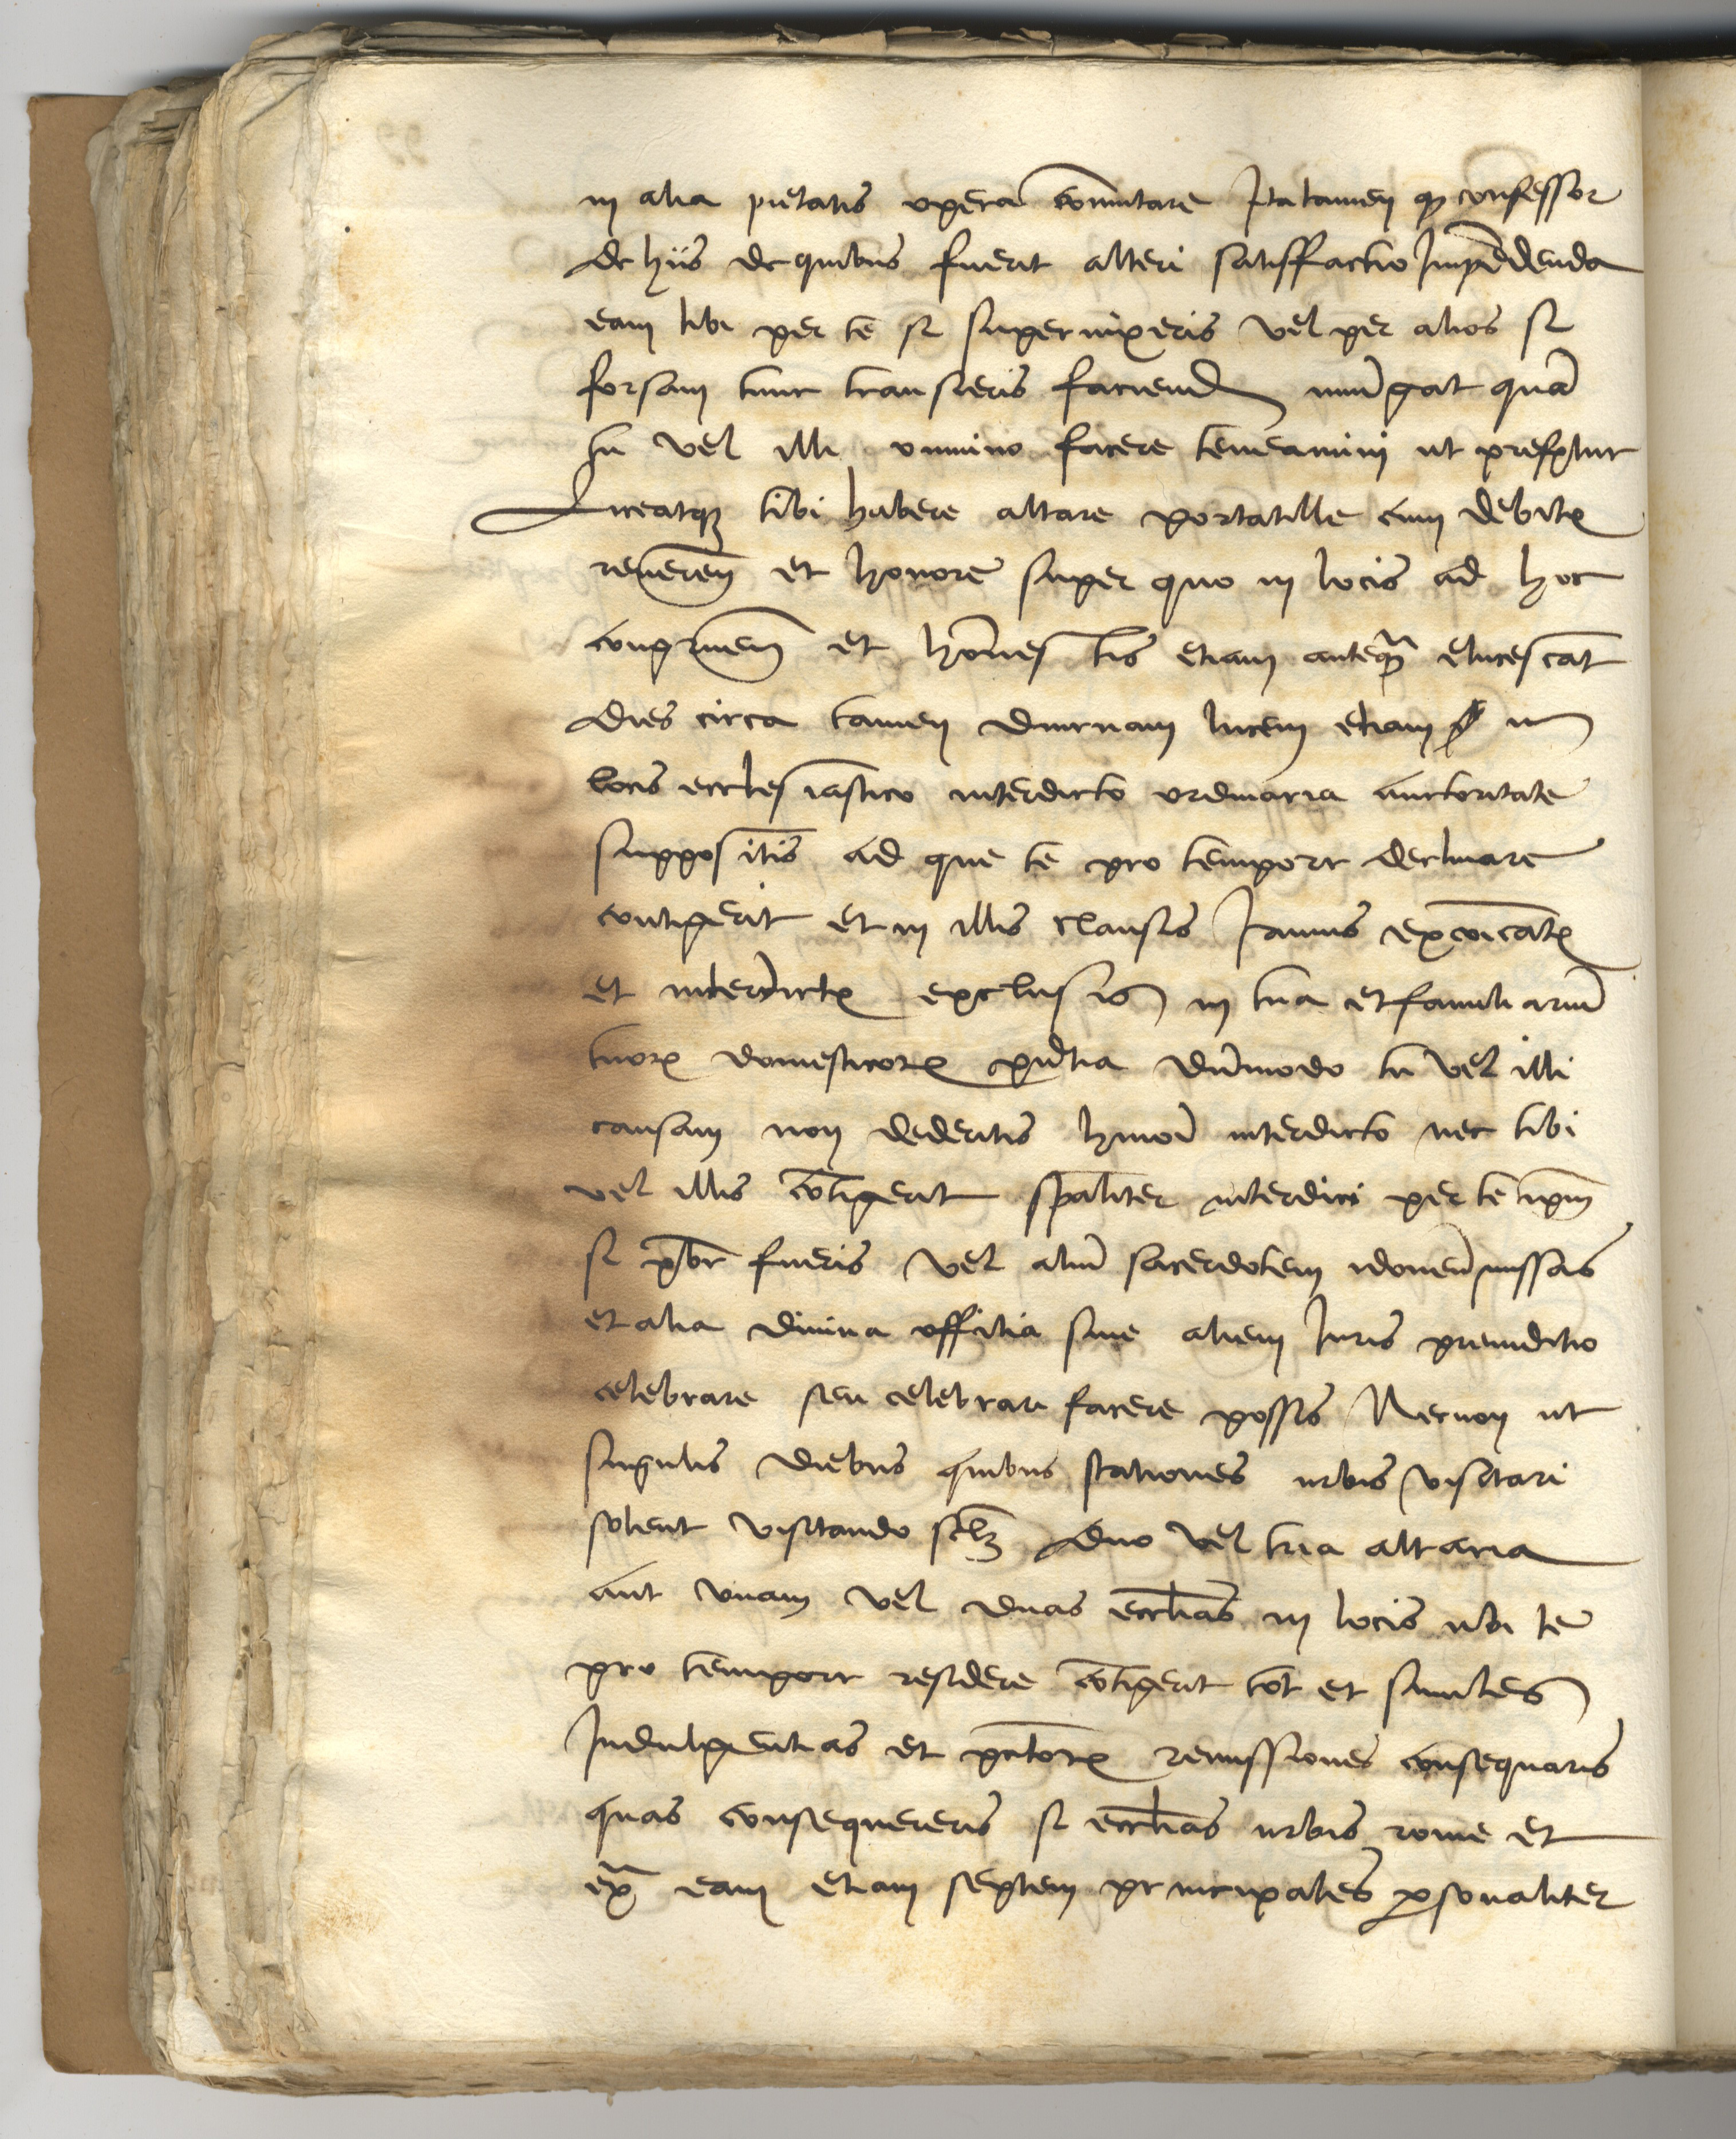 in alia pietatis opera com̄utare Ita tamen q̄ confessor
de hiis de quibus fuerit alteri satisffactio Impēdenda
eam tibi per te si supervixeris vel per alios si
forsam tunc transieris faciend iniūgat quā
tu vel illi omnino facere teneamini ut prefertur
Liceatqȝ tibi habere altare portatille cum debitꝭ
reverem̄ et honore super quo in locis ad hoc
congruem̄ et hōnestis etiam anteqȝ̄ elucescat
dies circa tamen diurnam lucem etiam in
locis ecclesiastico interdicto ordinaria auctoritate
suppositis ad que te pro tempore declinare
contigerit et in illis clausis Januis exco͞icatꝭ
et interdictꝭ exclusis in tua et familiariū
tuorꝭ domesticorꝭ pn̄tia dūmodo tu vel illi
causam non dederitis hmōi interdicto nec tibi
vel illis cōtigerit spāliter interdici per te ipm̄
si pbr̄ fueris vel aliū sacerdotem idoneū missas
et alia divina offitia sine alieni Juris preiuditio
celebrare seu celebrari facere possis Necnon ut
singulis diebus quibus stationes urbis visitari
solent visitando sclȝ duo vel tria altaria
aut unam vel duas ecclīas in locis ubi te
pro tempore residere cōtigerit tot et similes
Indulgentias et pctōrꝭ remissiones consequaris
quas consequereris si ecclīas urbis rome et
ex̄ eam etiam septem principales ꝑsonaliter